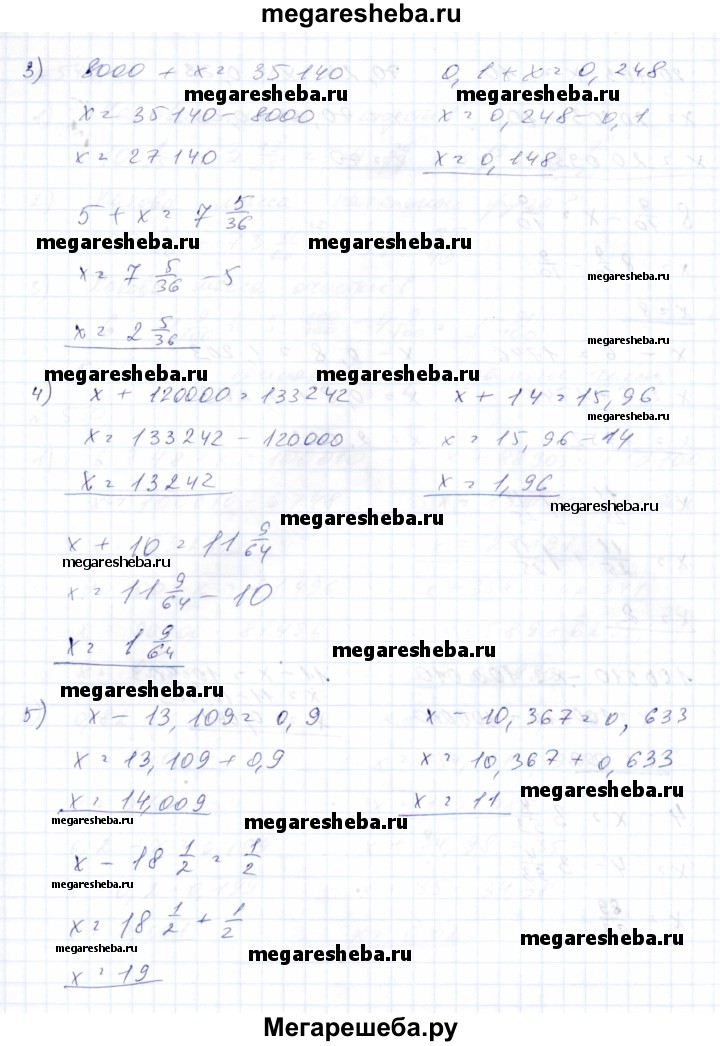 megaresheba.ru
3) 8000 + x = 35140
x = 35140 - 8000
x = 27140
0,1 + x = 0,248
x = 0,248 - 0,1
x = 0,148
megaresheba.ru megaresheba.ru
5 + x = 7 5/36
x = 7 5/36 - 5
x = 2 5/36
megaresheba.ru megaresheba.ru
megaresheba.ru
megaresheba.ru
megaresheba.ru megaresheba.ru
4) x + 120000 = 133242
x = 133242 - 120000
x = 13242
x + 14 = 15,96
x = 15,96 - 14
x = 1,96
megaresheba.ru
megaresheba.ru
megaresheba.ru
x + 10 = 11 9/64
x = 11 9/64 - 10
x = 1 9/64
megaresheba.ru
megaresheba.ru
megaresheba.ru
5) x - 13,109 = 0,9
x = 13,109 + 0,9
x = 14,009
x - 10,367 = 0,633
x = 10,367 + 0,633
x = 11
megaresheba.ru
megaresheba.ru megaresheba.ru
x - 18 1/2 = 1/2
x = 18 1/2 + 1/2
x = 19
megaresheba.ru megaresheba.ru
megaresheba.ru
megaresheba.ru megaresheba.ru
Мегарешеба.ру